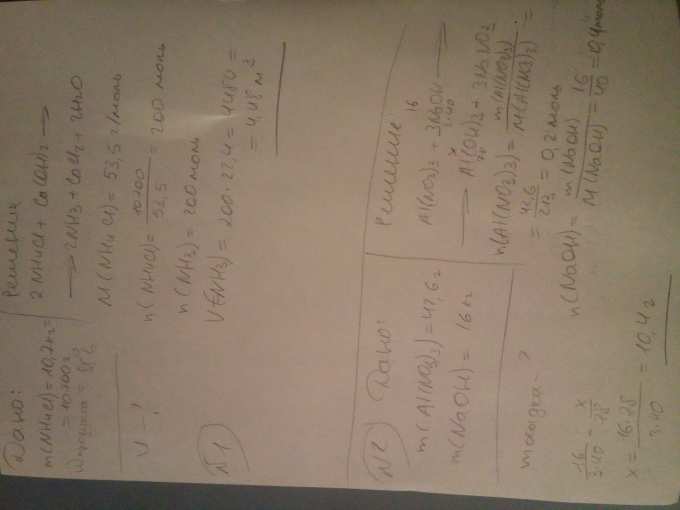 Дано:
m(NH4Cl) = 10,7кг =
= 10700г
V - ?
Решение
2NH4Cl + Ca(OH)2 →
→ 2NH3 + CaCl2 + 2H2O
M(NH4Cl) = 53,5 г/моль
n(NH4Cl) = 10700 / 53,5 = 200 моль
n(NH3) = 200 моль
V(NH3) = 200 · 22,4 = 4480 =
= 4,48 м³
N1
N2
Дано:
m(Al(NO3)3) = 42,6г
m(NaOH) = 16 г
m осадка - ?
Решение
16
Al(NO3)3 + 3NaOH →
3·40
x
→ Al(OH)3 + 3NaNO3
78
n(Al(NO3)3) = m(Al(NO3)3) / M(Al(NO3)3) =
= 42,6 / 213 = 0,2 моль
n(NaOH) = m(NaOH) / M(NaOH) = 16 / 40 = 0,4 моль
16 / 3·40 = x / 78
x = 16·78 / 3·40 = 10,4 г